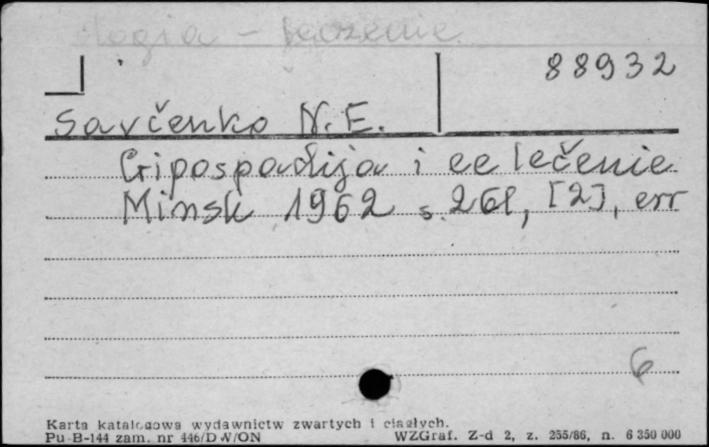 ologia - leczenie
88932
Savčenko N.E.
Gipospadija i ee lečenie
Minsk 1962 s. 261, [2], err
6
Karta katalogowa wydawnictw zwartych i ciągłych.
Pu-B-144 zam. nr 446/DW/ON WZGraf. Z-d 2, z. 255/86, n. 6 350 000